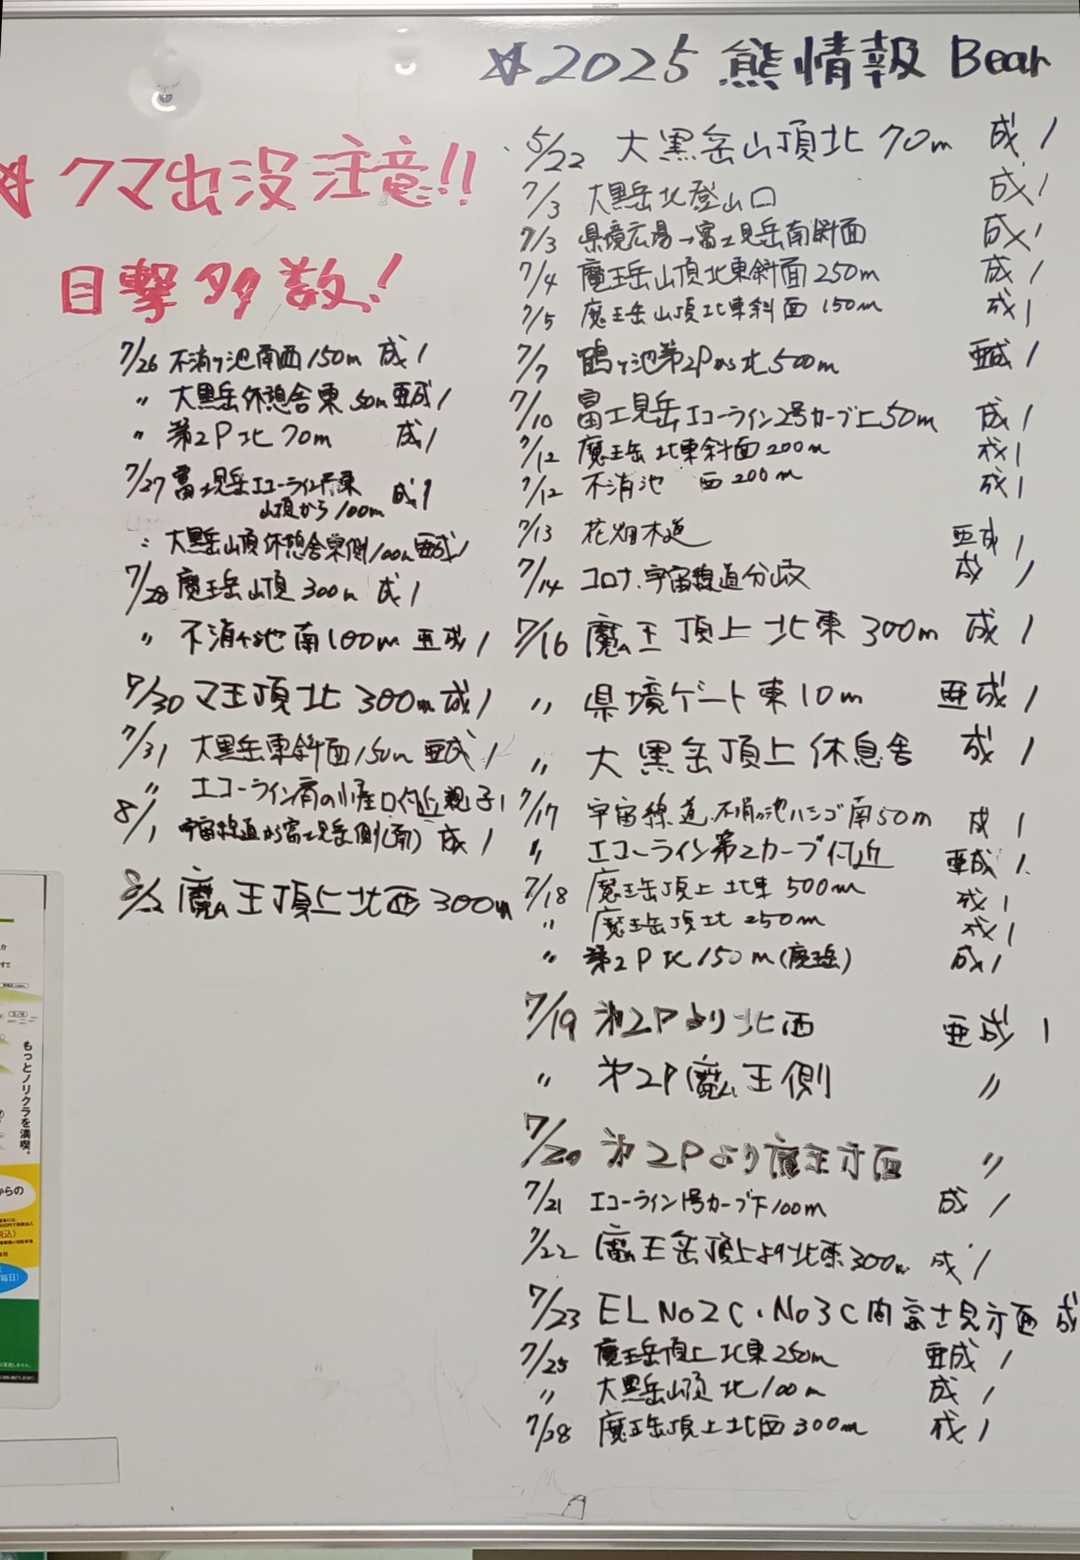 ☆2025 熊情報 Bear
☆クマ出没注意!!
目撃多数!
5/22 大黒岳山頂北 70m 成 1
7/3 大黒岳北登山口 成 1
7/3 県境広場→富士見岳南斜面 成 1
7/4 魔王岳山頂北東斜面 250m 成 1
7/5 魔王岳山頂北東斜面 150m 成 1
7/7 鶴ヶ池第2Pから北500m 亜成 1
7/10 富士見岳エコーライン2号カーブ上50m 成 1
7/12 魔王岳 北東斜面200m 成 1
7/12 不消池 西200m 成 1
7/13 花畑木道 亜成 1
7/14 コロナ、宇宙線道分岐 成 1
7/16 魔王頂上北東300m 成 1
〃 県境ゲート東10m 亜成 1
〃 大黒岳頂上休息舎 成 1
7/17 宇宙線道、不消ヶ池ハシゴ南50m 成 1
〃 エコーライン第2カーブ付近 亜成 1
7/18 魔王岳頂上 北東500m 成 1
〃 魔王岳頂北250m 成 1
〃 第2P北150m(魔王岳) 成 1
7/19 第2Pより北西 亜成 1
〃 第2P魔王側 〃
7/20 第2Pより魔王斜面 〃
7/21 エコーライン1号カーブ下100m 成 1
7/22 魔王岳頂上より北東300m 成 1
7/23 EL No2C・No3C間富士見斜面 成
7/25 魔王岳頂上北東250m 亜成 1
〃 大黒岳山頂北100m 成 1
7/28 魔王岳頂上北西300m 成 1
7/26 不消ヶ池南西150m 成 1
〃 大黒岳休憩舎東50m 亜成 1
〃 第2P北70m 成 1
7/27 富士見岳エコーライン
山頂から100m 成 1
〃 大黒岳山頂休憩舎東側100m 亜成 1
7/28 魔王岳山頂300m 成 1
〃 不消ヶ池南100m 亜成 1
7/30 マ王頂北300m 成 1
7/31 大黒岳東斜面150m 亜成 1
〃 エコーライン肩の小屋口付近親子1
8/1 宇宙線道から富士見岳側(南) 成 1
8/2 魔王頂上北西300m
もっとノリクラを満喫。
からの